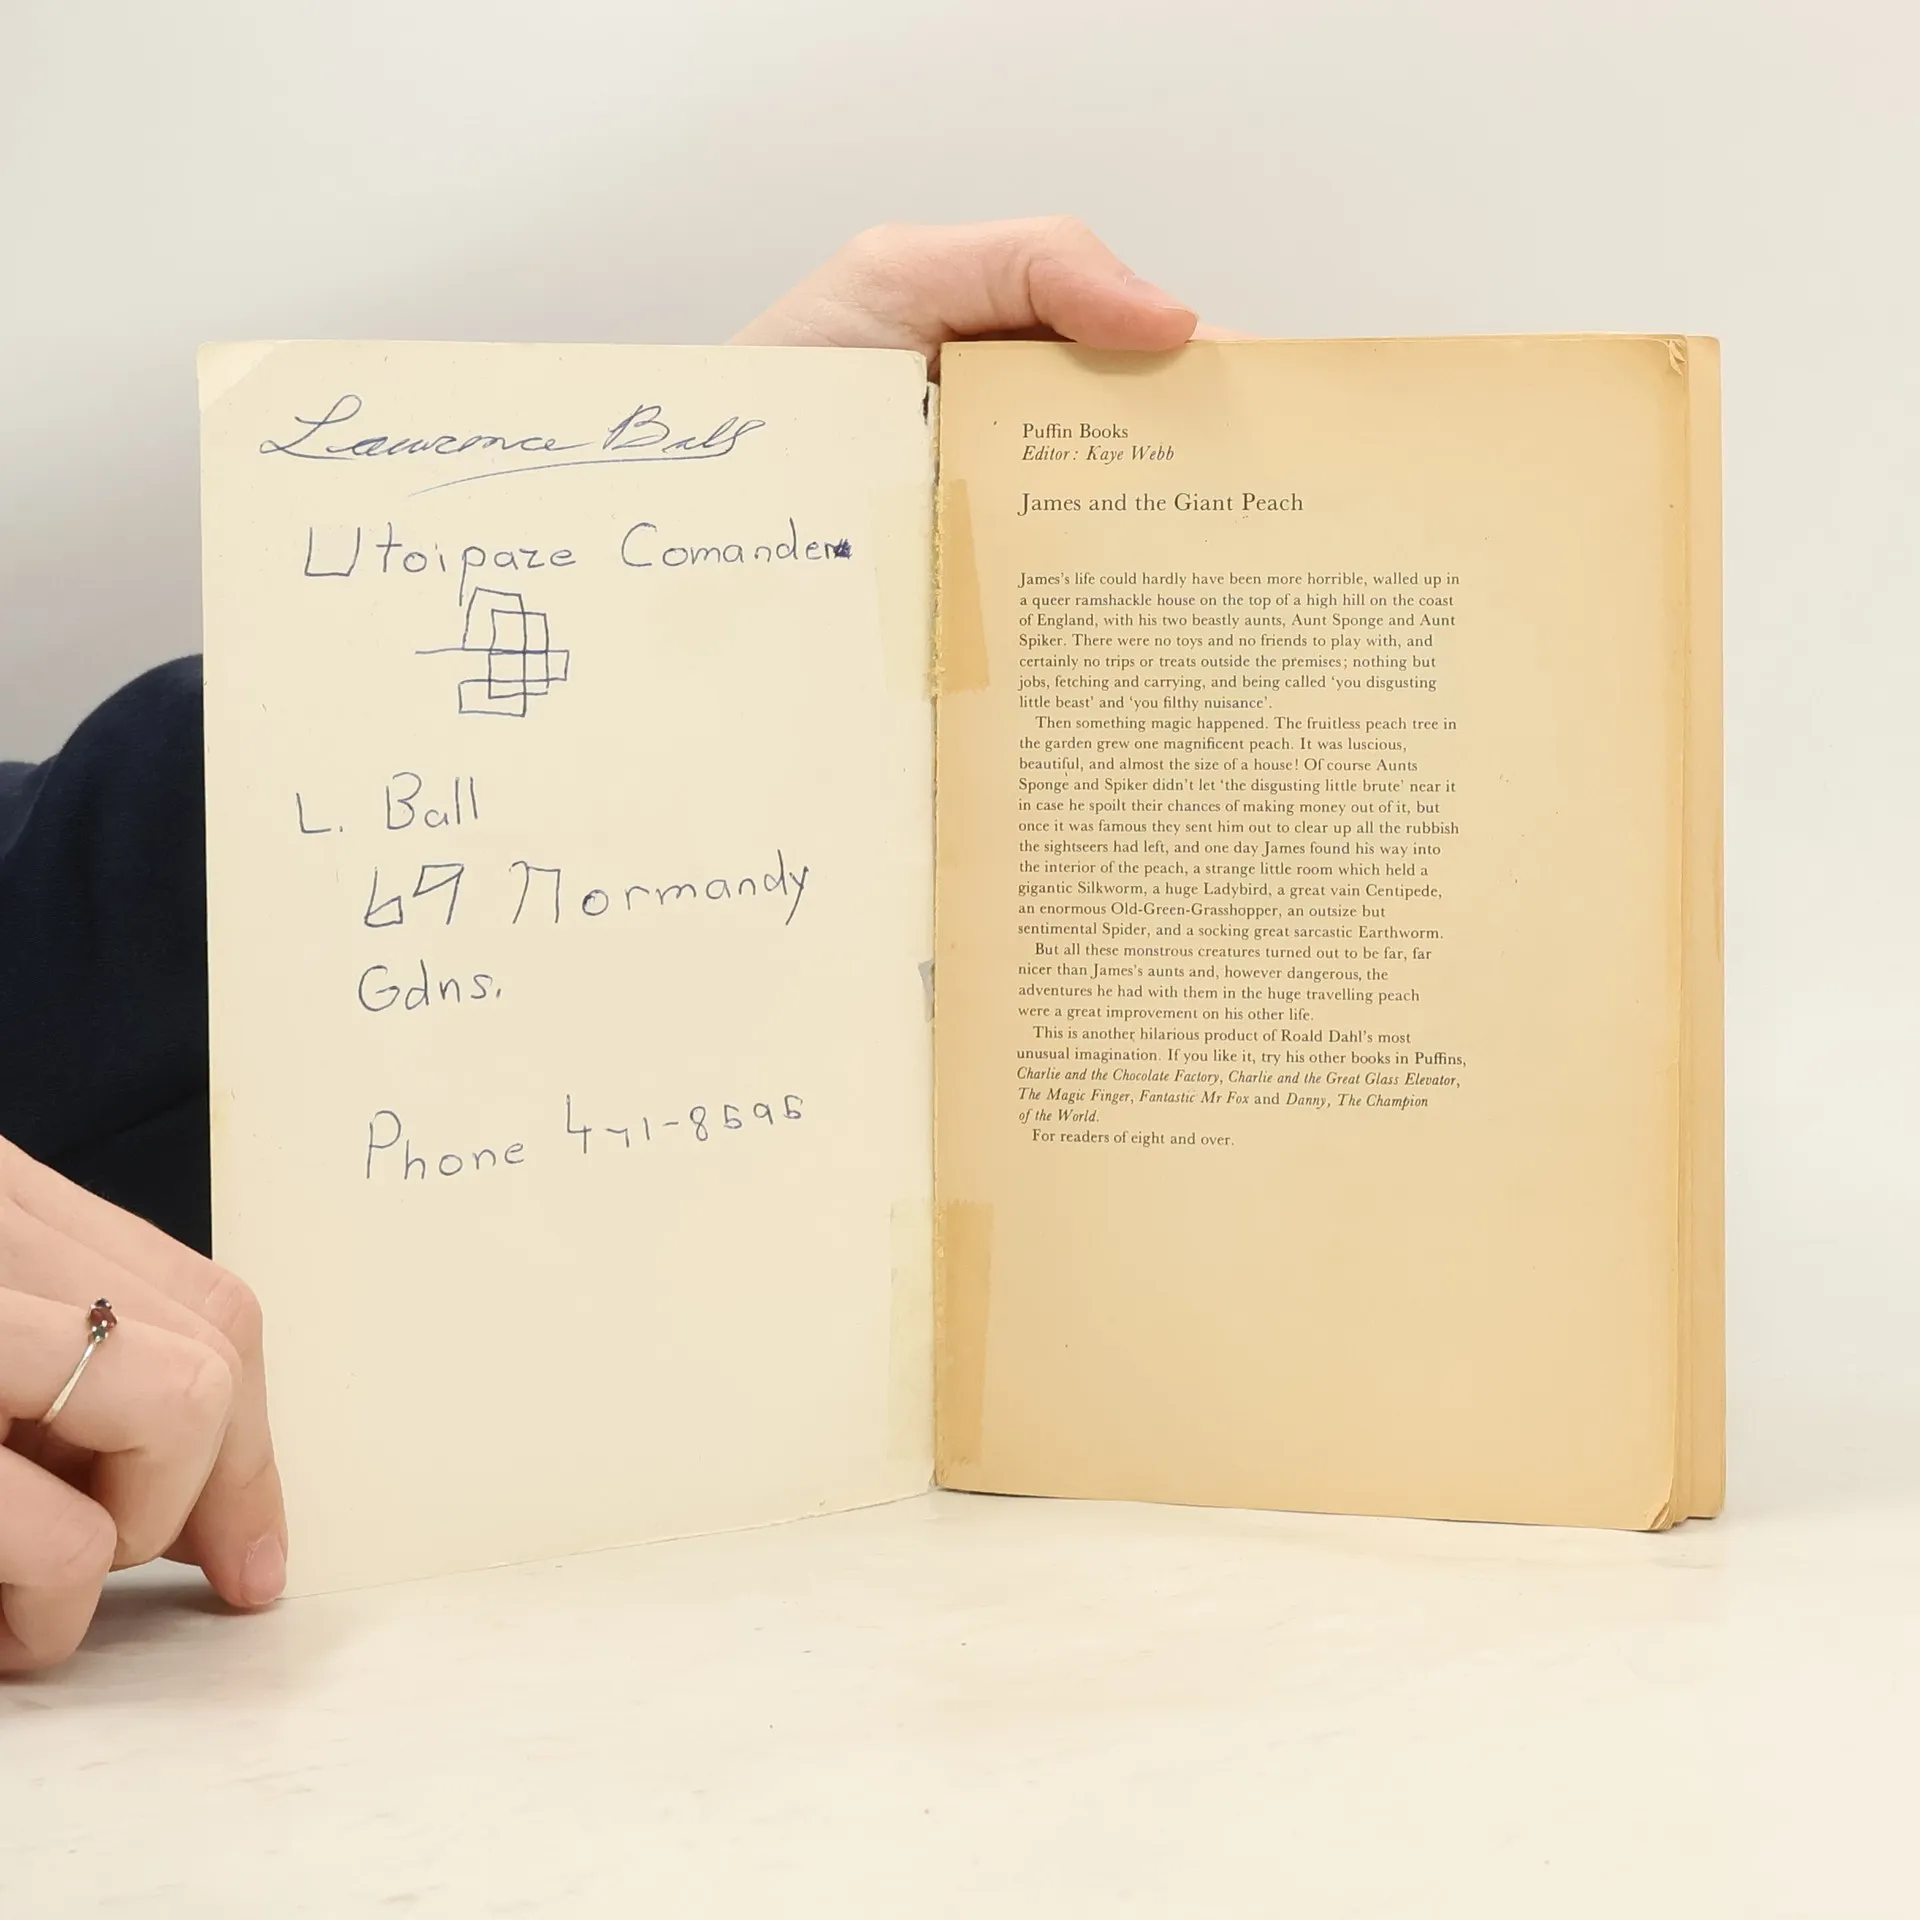 Lawrence Ball
Utoipaze Comander
L. Ball
69 Normandy
Gdns.
Phone 471-8595
Puffin Books
Editor: Kaye Webb
James and the Giant Peach
James's life could hardly have been more horrible, walled up in
a queer ramshackle house on the top of a high hill on the coast
of England, with his two beastly aunts, Aunt Sponge and Aunt
Spiker. There were no toys and no friends to play with, and
certainly no trips or treats outside the premises; nothing but
jobs, fetching and carrying, and being called ‘you disgusting
little beast’ and ‘you filthy nuisance’.
Then something magic happened. The fruitless peach tree in
the garden grew one magnificent peach. It was luscious,
beautiful, and almost the size of a house! Of course Aunts
Sponge and Spiker didn't let ‘the disgusting little brute’ near it
in case he spoilt their chances of making money out of it, but
once it was famous they sent him out to clear up all the rubbish
the sightseers had left, and one day James found his way into
the interior of the peach, a strange little room which held a
gigantic Silkworm, a huge Ladybird, a great vain Centipede,
an enormous Old-Green-Grasshopper, an outsize but
sentimental Spider, and a socking great sarcastic Earthworm.
But all these monstrous creatures turned out to be far, far
nicer than James's aunts and, however dangerous, the
adventures he had with them in the huge travelling peach
were a great improvement on his other life.
This is another hilarious product of Roald Dahl's most
unusual imagination. If you like it, try his other books in Puffins,
Charlie and the Chocolate Factory, Charlie and the Great Glass Elevator,
The Magic Finger, Fantastic Mr Fox and Danny, The Champion
of the World.
For readers of eight and over.